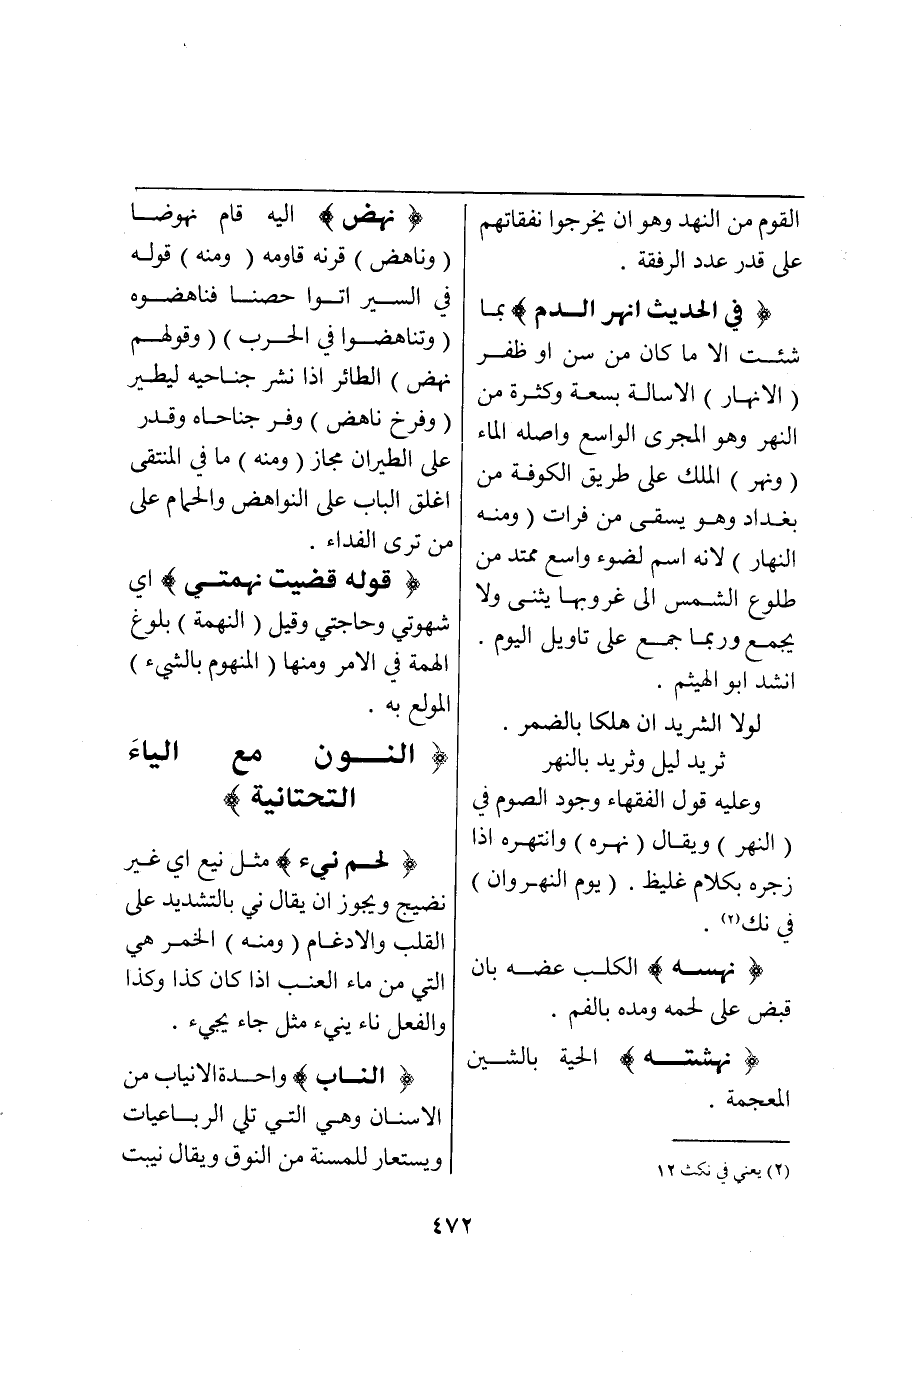 القوم من النهد وهو ان يخرجوا نفقاتهم
على قدر عدد الرفقة .
﴿ في الحديث انهر الــدم ﴾ بما
شئــت الا ما كان من سن او ظفــر
( الانهـار ) الاسالة بسعة وكثـرة من
النهر وهو المجرى الواسع واصله الماء
( ونهر ) الملك على طريق الكوفـة من
بغـداد وهـو يسقـى من فرات ( ومنـه
النهار ) لانه اسم لضوء واسع ممتد من
طلوع الشمـس الى غروبهـا يثنـى ولا
يجمـع وربمـا جمـع على تاويل اليوم .
انشد ابو الهيثم .
لولا الثريد ان هلكا بالضمر .
ثريد ليل وثريد بالنهر
وعليه قول الفقهاء وجود الصوم في
( النهر ) ويقـال ( نهـره ) وانتهـره اذا
زجره بكلام غليظ . ( يوم النهـروان )
في نك(٢) .
﴿ نهســه ﴾ الكلـب عضـه بان
قبض على لحمه ومده بالفم .
﴿ نهشتــه ﴾ الحية بالشــين
المعجمة .
(٢) يعني في نكث ١٢
﴿ نهض ﴾ اليه قام نهوضــا
( وناهض ) قرنه قاومه ( ومنه ) قولـه
في الســير اتــوا حصنــا فناهضــوه
( وتناهضــوا في الحــرب ) ( وقولهــم
نهض ) الطائر اذا نشر جنـاحيه ليطير
( وفرخ ناهض ) وفـر جناحـاه وقـدر
على الطيران مجاز ( ومنه ) ما في المنتقى
اغلق الباب على النواهض والحمام على
من ترى الفداء .
﴿ قوله قضيت نهمتــي ﴾ اي
شهوتي وحاجتي وقيل ( النهمة ) بلوغ
الهمة في الامر ومنها ( المنهوم بالشيء )
المولع به .
﴿ النــون مع الياءَ
التحتانية ﴾
﴿ لحــم نيء ﴾ مثـل نيع اي غـير
نضيج ويجوز ان يقال ني بالتشديد على
القلب والادغـام ( ومنـه ) الخمـر هي
التي من ماء العنـب اذا كان كذا وكذا
والفعل ناء ينيء مثل جاء يجيء .
﴿ النــاب ﴾ واحـدة الانياب من
الاسنـان وهـي التـي تلي الربـاعيات
ويستعار للمسنة من النوق ويقال نيبت
٤٧٢